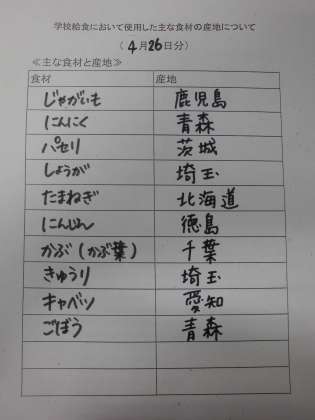 学校給食において使用した主な食材の産地について
(4月26日分)
≪主な食材と産地≫
食材 産地
じゃがいも 鹿児島
にんにく 青森
パセリ 茨城
しょうが 埼玉
たまねぎ 北海道
にんじん 徳島
かぶ(かぶ葉) 千葉
きゅうり 埼玉
キャベツ 愛知
ごぼう 青森